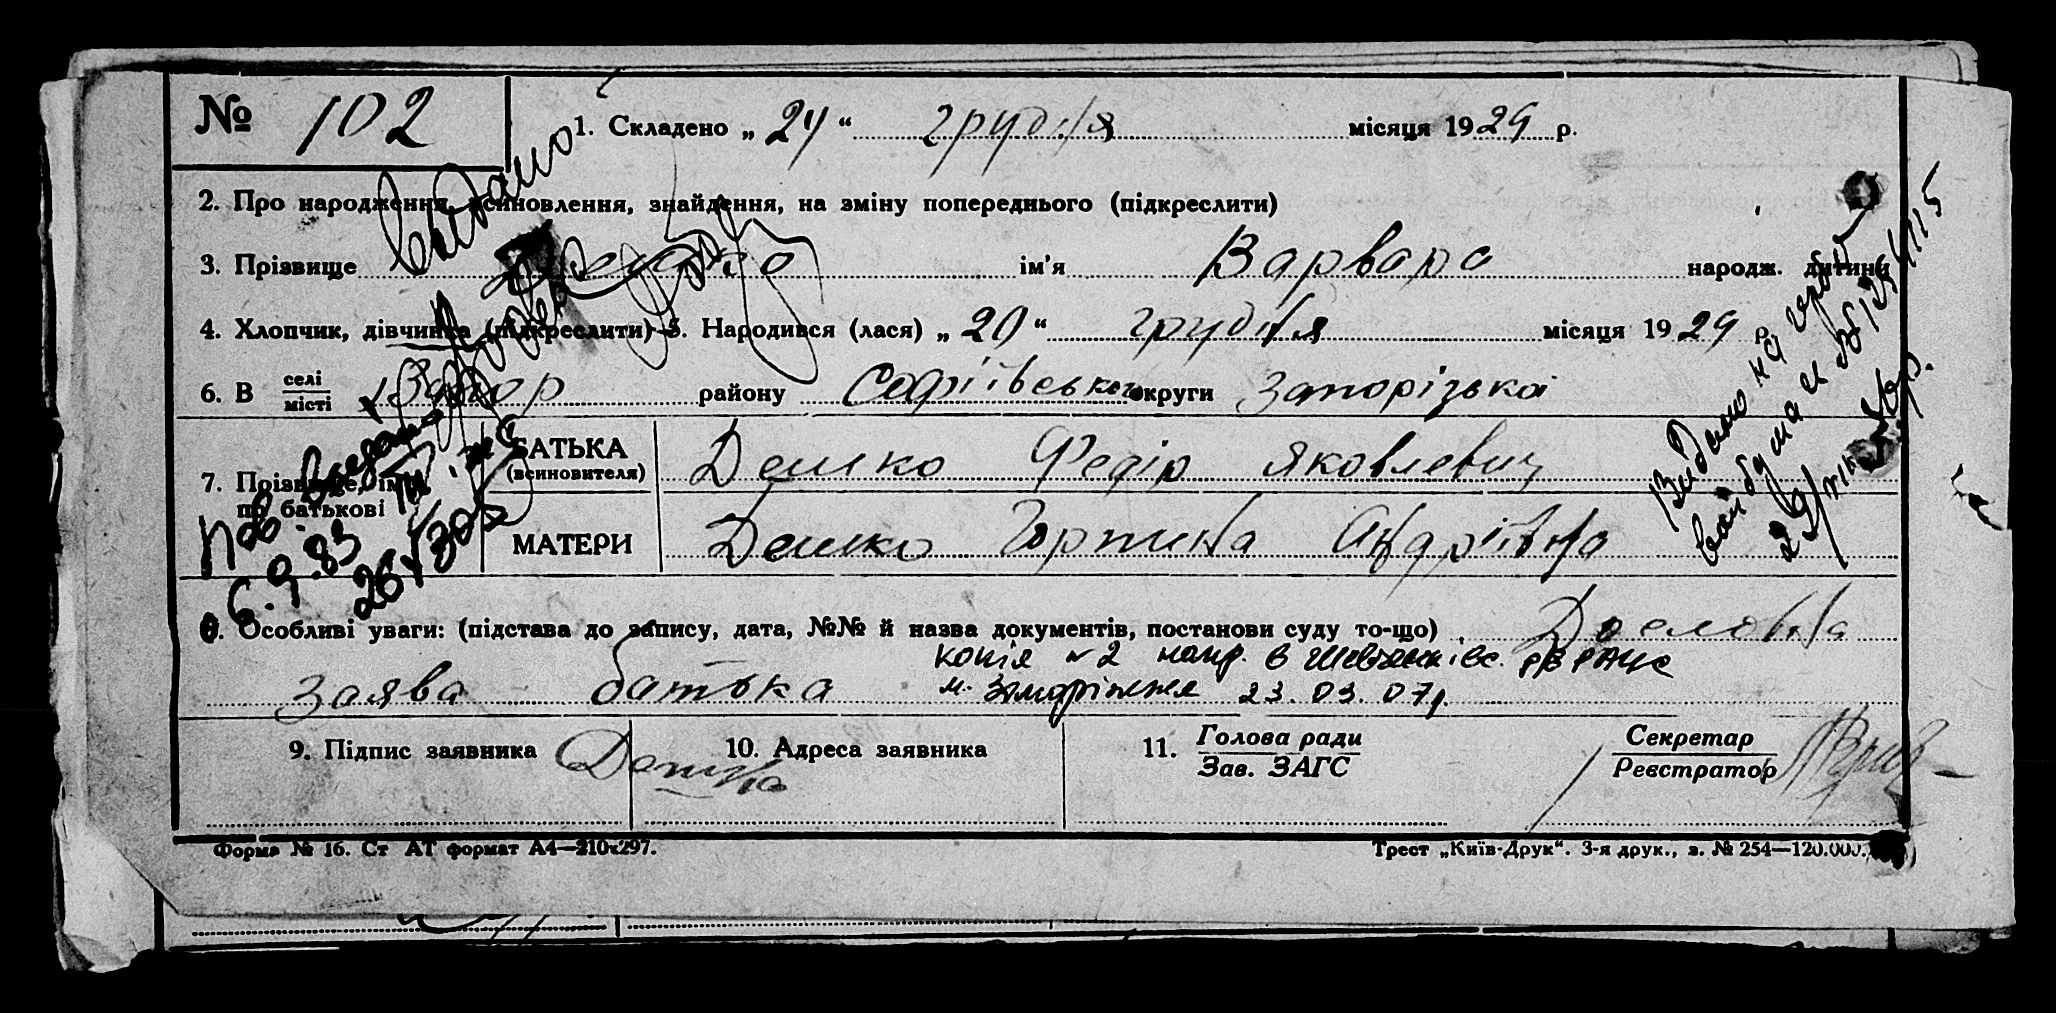 № 102
1. Складено „ 24 “ грудня місяця 1929 р.
2. Про народження, всиновлення, знайдення, на зміну попереднього (підкреслити)
3. Прізвище ім'я Варвара народж. дитини
4. Хлопчик, дівчинка (підкреслити) 5. Народився (лася) „ 20 “ грудня місяця 1929 р.
6. В селі місті району Софіївського округи Запорізька
7. Прізвище, ім'я, по батькові
БАТЬКА (всиновителя) Демко Федір Яковлевич
МАТЕРИ Демко Горпина Андріївна
Видано
Пов. видано
6.9.83
Видано на гербо
8. Особливі уваги: (підстава до запису, дата, №№ й назва документів, постанови суду то-що) Дословна
заява батька
копія №2 напр. в Шевченківс. РВ РАЦС
м. Запоріжжя 23.03.07р.
9. Підпис заявника Демко
10. Адреса заявника
11. Голова ради Зав. ЗАГС
Секретар Реєстратор
Форма № 16. Ст АТ формат А4—210х297.
Трест „Київ-Друк“. 3-я друк., з. № 254—120.000.